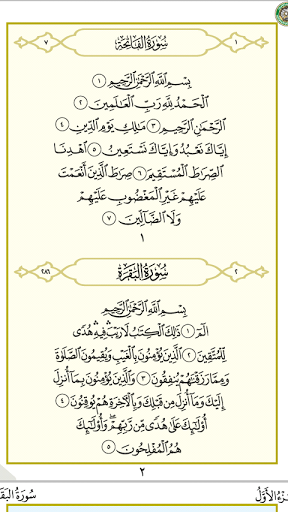 ٧ سُورَةُ الفَاتِحَةِ ١
بِسْمِ ٱللَّهِ ٱلرَّحْمَٰنِ ٱلرَّحِيمِ ١
ٱلْحَمْدُ لِلَّهِ رَبِّ ٱلْعَٰلَمِينَ ٢
ٱلرَّحْمَٰنِ ٱلرَّحِيمِ ٣ مَٰلِكِ يَوْمِ ٱلدِّينِ ٤
إِيَّاكَ نَعْبُدُ وَإِيَّاكَ نَسْتَعِينُ ٥ ٱهْدِنَا
ٱلصِّرَٰطَ ٱلْمُسْتَقِيمَ ٦ صِرَٰطَ ٱلَّذِينَ أَنْعَمْتَ
عَلَيْهِمْ غَيْرِ ٱلْمَغْضُوبِ عَلَيْهِمْ
وَلَا ٱلضَّآلِّينَ ٧
١
٢٨٦ سُورَةُ البَقَرَةِ ٢
بِسْمِ ٱللَّهِ ٱلرَّحْمَٰنِ ٱلرَّحِيمِ
الٓمٓ ١ ذَٰلِكَ ٱلْكِتَٰبُ لَا رَيْبَ ۛ فِيهِ ۛ هُدًى
لِّلْمُتَّقِينَ ٢ ٱلَّذِينَ يُؤْمِنُونَ بِٱلْغَيْبِ وَيُقِيمُونَ ٱلصَّلَوٰةَ
وَمِمَّا رَزَقْنَٰهُمْ يُنفِقُونَ ٣ وَٱلَّذِينَ يُؤْمِنُونَ بِمَآ أُنزِلَ
إِلَيْكَ وَمَآ أُنزِلَ مِن قَبْلِكَ وَبِٱلْءَاخِرَةِ هُمْ يُوقِنُونَ ٤
أُو۟لَٰٓئِكَ عَلَىٰ هُدًى مِّن رَّبِّهِمْ ۖ وَأُو۟لَٰٓئِكَ
هُمُ ٱلْمُفْلِحُونَ ٥
٢